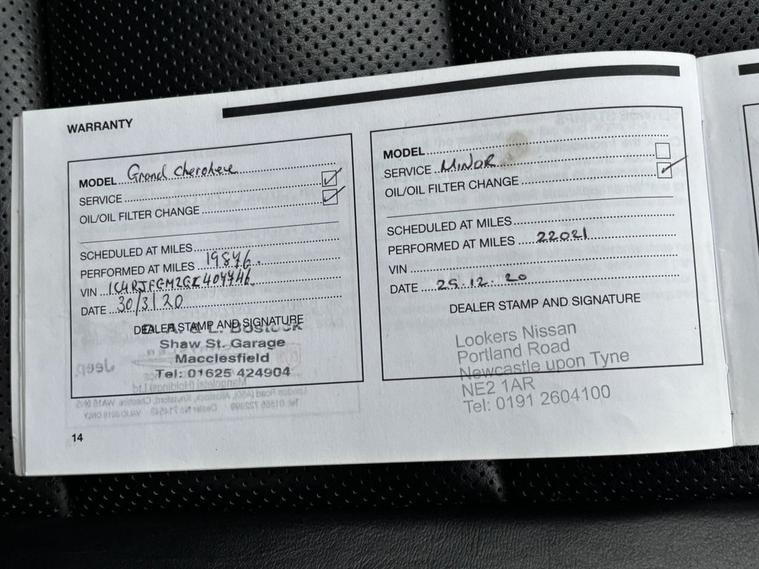 WARRANTY
MODEL Grand Cherokee
SERVICE
OIL/OIL FILTER CHANGE
SCHEDULED AT MILES
PERFORMED AT MILES 19876.
VIN
DATE 30/3/20
DEALER STAMP AND SIGNATURE
& L. Bostock
Shaw St. Garage
Macclesfield
Tel: 01625 424904
14
MODEL
SERVICE MINOR
OIL/OIL FILTER CHANGE
SCHEDULED AT MILES
PERFORMED AT MILES 22021
VIN
DATE 29.12.20
DEALER STAMP AND SIGNATURE
Lookers Nissan
Portland Road
Newcastle upon Tyne
NE2 1AR
Tel: 0191 2604100